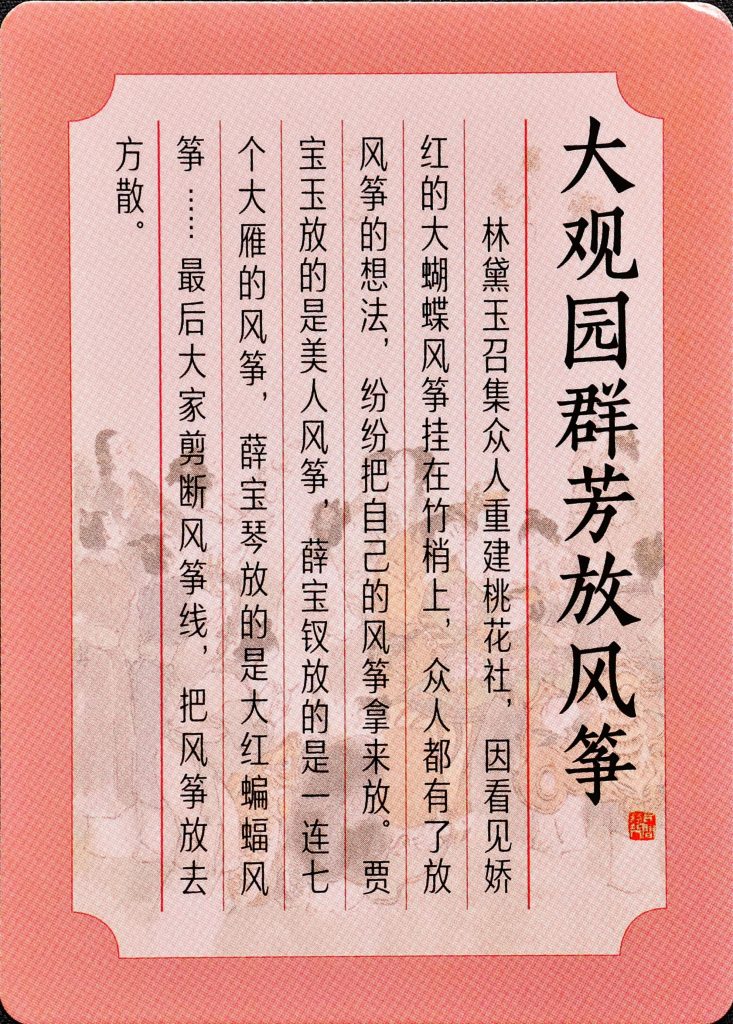 大观园群芳放风筝
林黛玉召集众人重建桃花社，因看见娇
红的大蝴蝶风筝挂在竹梢上，众人都有了放
风筝的想法，纷纷把自己的风筝拿来放。贾
宝玉放的是美人风筝，薛宝钗放的是一连七
个大雁的风筝，薛宝琴放的是大红蝙蝠风
筝……最后大家剪断风筝线，把风筝放去
方散。